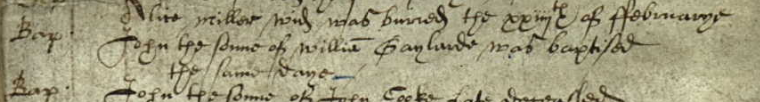 Alice miller wid was buried the xxiiijth of ffebruarye
Bap John the sonne of willia Gaylarde was baptised
the same daye
Bap John the sonne of John Cooke late deceassed